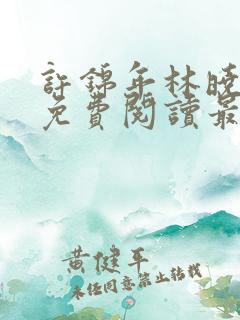 許錦年林曉
免費閱讀最
黃健平
未經同意禁止轉載